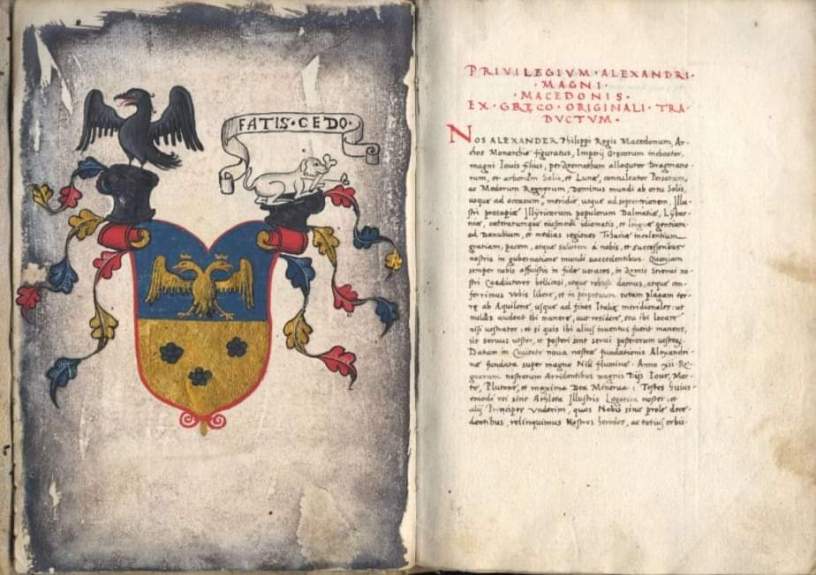 FATIS·CEDO·
PRIVILEGIVM·ALEXANDRI·
·MAGNI·
·MACEDONIS·
EX·GRECO·ORIGINALI·TRA-
DVCTVM·
NOS ALEXANDER Philippi Regis Macedonum, Ar-
Monarchiæ figuratus, Imperij Græcorum inchoator,
magni Iouis filius, per allocutor
rum, et arborum Solis, et Lunæ, conculcator Persarum,
ac Medorum Regnorum, Dominus mundi ab ortu Solis,
usque ad occasum, meridie usque ad septentrionem. Illu-
stri prosapiæ Illyricorum populorum Dalmatiæ, Lyber-
niæ, cæterarumque eiusmodi idiomatis, et linguæ gentium
ad Danubium, et medias regiones Thraciæ incolentium
gratiam, pacem, atque salutem à nobis, et successoribus
nostris in gubernatione mundi succedentibus. Quoniam
semper nobis affuistis in fide ueraces, in armis strenui no-
stri Coadiutores bellicosi, atque robusti damus, atque con-
ferimus Vobis liberè, et in perpetuum totam plagam ter-
ræ ab Aquilone, usque ad fines Italiæ meridionales: ut
nullus audeat ibi manere, aut residere, seu ibi locare
nisi uestrates: et si quis ibi alius inuentus fuerit manens,
sit seruus uester, et posteri sint serui posterorum uestrorum
Datum in nouæ nostræ fundationis Alexandri-
næ fundatæ super magno Nili flumine. Anno xii Re-
gnorum nostrorum Arridentibus magnis Dijs Ioue, Mar-
te, Plutone, et maxima Dea Minerua: Testes huius-
emodi rei sint Athleta Illustris noster: et
alij Principes undecim, quos Nobis sine prole dece-
dentibus, relinquimus Nostros heredes, ac totius orbis·